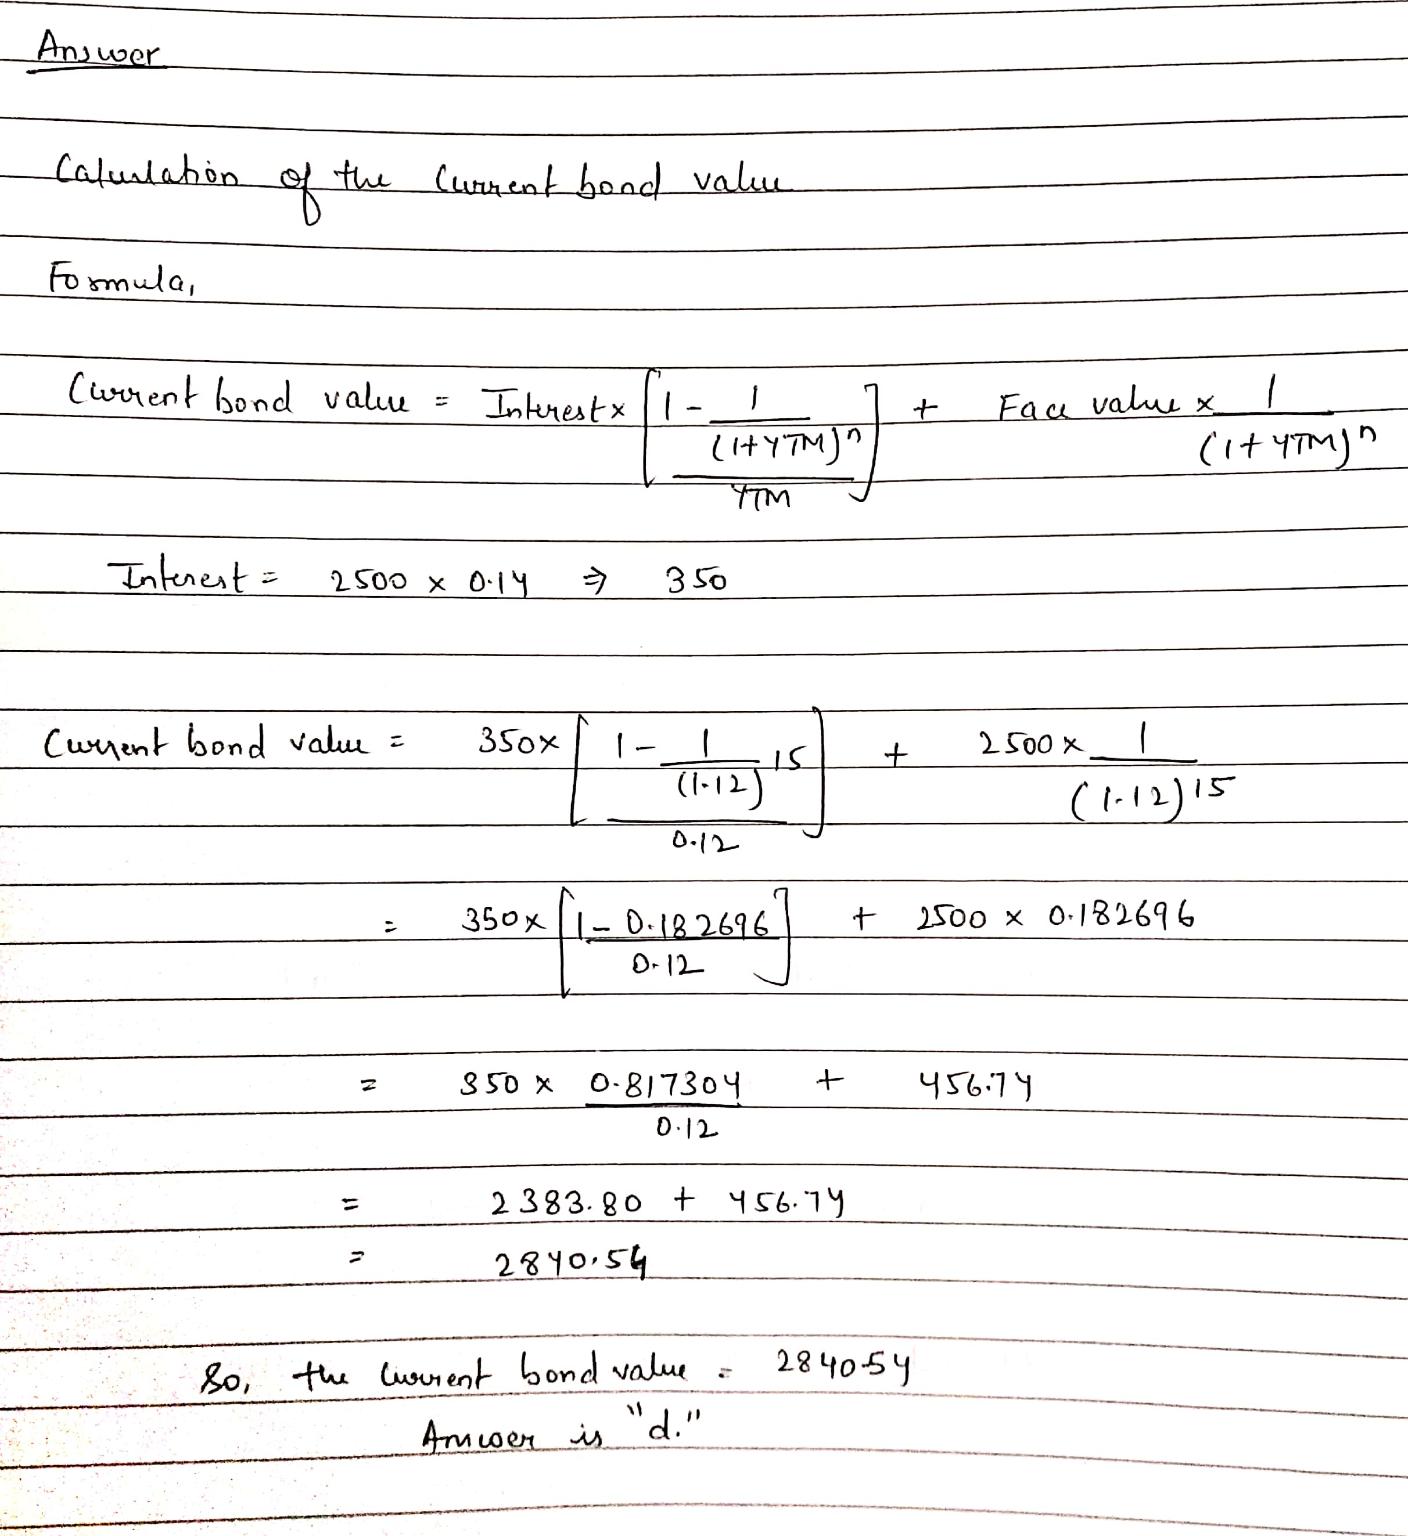 Answer
Calculation of the Current bond value
Formula,
Current bond value = Interest x [1 - 1/(1+YTM)^n / YTM] + Face value x 1/(1+YTM)^n
Interest = 2500 x 0.14 ⇒ 350
Current bond value = 350x [1 - 1/(1.12)^15 / 0.12] + 2500 x 1/(1.12)^15
= 350x [1 - 0.182696 / 0.12] + 2500 x 0.182696
= 350 x 0.817304 / 0.12 + 456.74
= 2383.80 + 456.74
= 2840.54
So, the current bond value = 2840.54
Answer is "d."